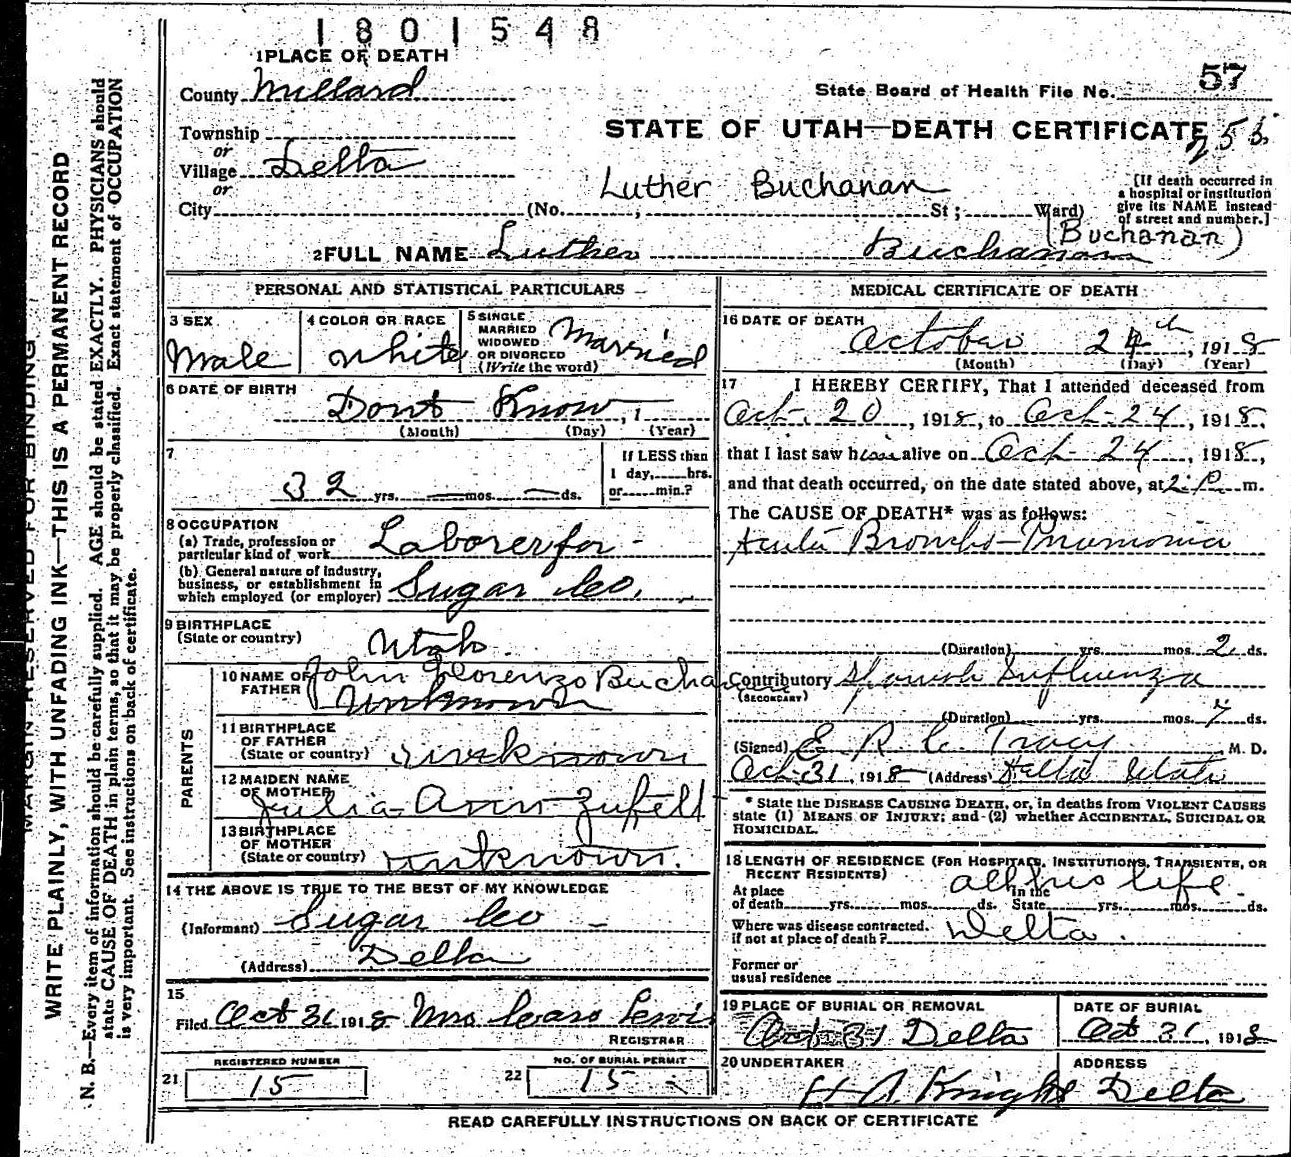 1801548
1 PLACE OF DEATH
County Millard
State Board of Health File No. 57
Township
or
STATE OF UTAH—DEATH CERTIFICATE 255
Village Delta
or
Luther Buchanan
[If death occurred in
a hospital or institution
give its NAME instead
of street and number.]
City (No. ; St; Ward)
(Buchanan)
2 FULL NAME Luther Buchanan
PERSONAL AND STATISTICAL PARTICULARS
3 SEX
Male
4 COLOR OR RACE
White
5 SINGLE
MARRIED
WIDOWED
OR DIVORCED
(Write the word)
Married
6 DATE OF BIRTH
Dont Know, 1
(Month) (Day) (Year)
7
32 yrs. — mos. — ds.
If LESS than
1 day, hrs.
or min.?
8 OCCUPATION
(a) Trade, profession or
particular kind of work Laborer for -
(b) General nature of industry,
business, or establishment in
which employed (or employer) Sugar Co.
9 BIRTHPLACE
(State or country) Utah.
PARENTS
10 NAME OF
FATHER John Lorenzo Buchanan
Unknown
11 BIRTHPLACE
OF FATHER
(State or country) unknown
12 MAIDEN NAME
OF MOTHER Julia Ann Zufelt
13 BIRTHPLACE
OF MOTHER
(State or country) unknown.
14 THE ABOVE IS TRUE TO THE BEST OF MY KNOWLEDGE
(Informant) Sugar Co —
(Address) Delta
15
Filed Oct 31 1918 Mrs Lewis
REGISTRAR
REGISTERED NUMBER
21 15
NO. OF BURIAL PERMIT
22 15 -
MEDICAL CERTIFICATE OF DEATH
16 DATE OF DEATH
October 24th, 1918
(Month) (Day) (Year)
17 I HEREBY CERTIFY, That I attended deceased from
Oct. 20, 1918, to Oct-24, 1918,
that I last saw him alive on Oct-24, 1918,
and that death occurred, on the date stated above, at 2. P. m.
The CAUSE OF DEATH* was as follows:
Acute Broncho-Pneumonia
(Duration) yrs. mos. 2 ds.
Contributory Spanish Influenza
(SECONDARY)
(Duration) yrs. mos. 4 ds.
(Signed) E R C Tracy M. D.
Oct 31, 1918 (Address) Delta Utah
* State the DISEASE CAUSING DEATH, or, in deaths from VIOLENT CAUSES
state (1) MEANS OF INJURY; and (2) whether ACCIDENTAL, SUICIDAL OR
HOMICIDAL.
18 LENGTH OF RESIDENCE (FOR HOSPITALS, INSTITUTIONS, TRANSIENTS, OR
RECENT RESIDENTS) all his life -
At place
of death yrs. mos. ds.
In the
State yrs. mos. ds.
Where was disease contracted,
if not at place of death? Delta.
Former or
usual residence
19 PLACE OF BURIAL OR REMOVAL
Oct 31 Delta
DATE OF BURIAL
Oct 31, 1918
20 UNDERTAKER
H A Knight
ADDRESS
Delta
READ CAREFULLY INSTRUCTIONS ON BACK OF CERTIFICATE
MARGIN RESERVED FOR BINDING
WRITE PLAINLY, WITH UNFADING INK—THIS IS A PERMANENT RECORD
N. B.—Every item of information should be carefully supplied. AGE should be stated EXACTLY. PHYSICIANS should
state CAUSE OF DEATH in plain terms, so that it may be properly classified. Exact statement of OCCUPATION
is very important. See instructions on back of certificate.